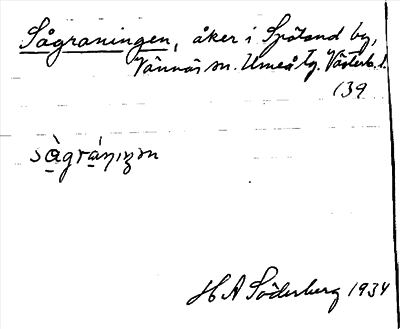 Sågraningen, åker i Spöland by,
Vännäs sn. Umeå tg. Västerb. l.
139
sàgrániŋən
H A Söderberg 1934